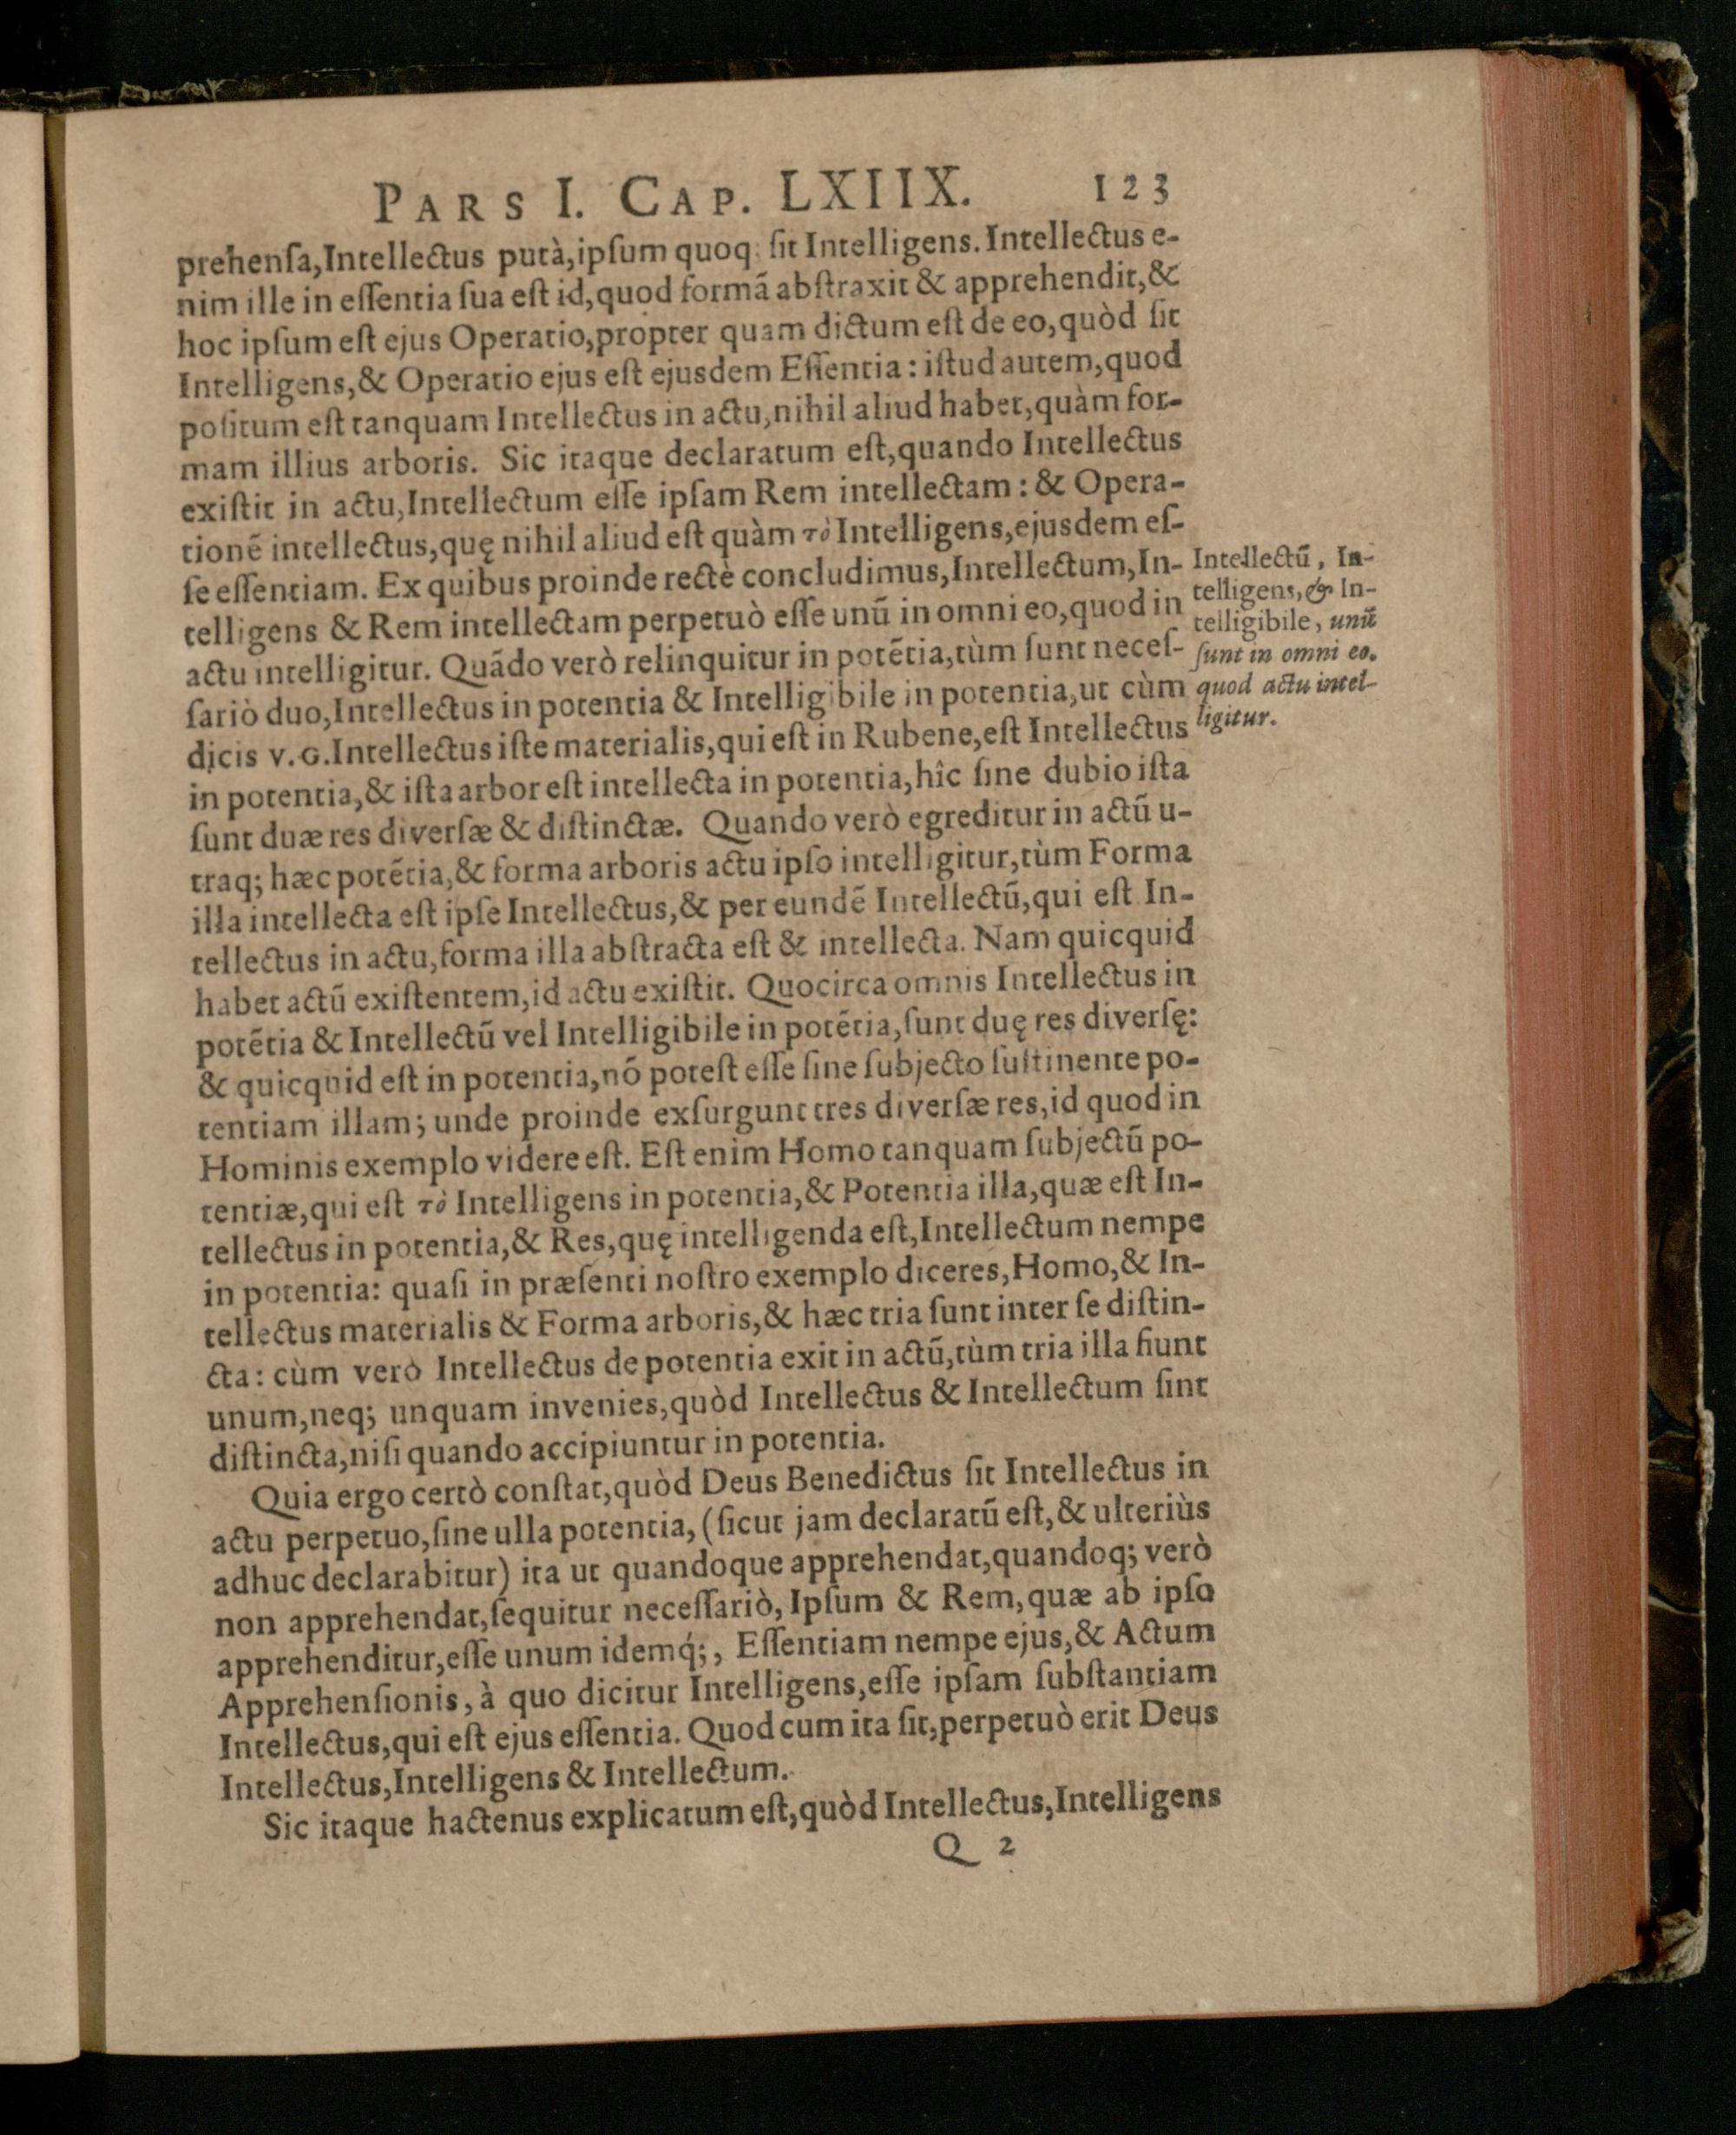 PARS I. CAP. LXIIX. 123
prehenſa,Intellectus putà,ipſum quoq; ſit Intelligens. Intellectus e-
nim ille in eſſentia ſua eſt id,quod formã abſtraxit & apprehendit,&
hoc ipſum eſt ejus Operatio,propter quam dictum eſt de eo,quòd ſit
Intelligens,& Operatio ejus eſt ejusdem Eſſentia: iſtud autem,quod
poſitum eſt tanquam Intellectus in actu,nihil aliud habet,quàm for-
mam illius arboris. Sic itaque declaratum eſt,quando Intellectus
exiſtit in actu,Intellectum eſſe ipſam Rem intellectam: & Opera-
tionẽ intellectus,quę nihil aliud eſt quàm τὸ Intelligens,ejusdem eſ-
ſe eſſentiam. Ex quibus proinde rectè concludimus,Intellectum,In-
telligens & Rem intellectam perpetuò eſſe unũ in omni eo,quod in
actu intelligitur. Quãdo verò relinquitur in potẽtia,tùm ſunt neceſ-
ſariò duo,Intellectus in potentia & Intelligibile in potentia,ut cùm
dicis v.G.Intellectus iſte materialis,qui eſt in Rubene,eſt Intellectus
in potentia,& iſta arbor eſt intellecta in potentia,hîc ſine dubio iſta
ſunt duæ res diverſæ & diſtinctæ. Quando verò egreditur in actũ u-
traq; hæc potẽtia,& forma arboris actu ipſo intelligitur,tùm Forma
illa intellecta eſt ipſe Intellectus,& per eundẽ Intellectũ,qui eſt In-
tellectus in actu,forma illa abſtracta eſt & intellecta. Nam quicquid
habet actũ exiſtentem,id actu exiſtit. Quocirca omnis Intellectus in
potẽtia & Intellectũ vel Intelligibile in potẽtia,ſunt duę res diverſę:
& quicquid eſt in potentia,nõ poteſt eſſe ſine ſubjecto ſuſtinente po-
tentiam illam; unde proinde exſurgunt tres diverſæ res,id quod in
Hominis exemplo videre eſt. Eſt enim Homo tanquam ſubjectũ po-
tentiæ,qui eſt τὸ Intelligens in potentia,& Potentia illa,quæ eſt In-
tellectus in potentia,& Res,quę intelligenda eſt,Intellectum nempe
in potentia: quaſi in præſenti noſtro exemplo diceres,Homo,& In-
tellectus materialis & Forma arboris,& hæc tria ſunt inter ſe diſtin-
cta: cùm verò Intellectus de potentia exit in actũ,tùm tria illa fiunt
unum,neq; unquam invenies,quòd Intellectus & Intellectum ſint
diſtincta,niſi quando accipiuntur in potentia.
Quia ergo certò conſtat,quòd Deus Benedictus ſit Intellectus in
actu perpetuo,ſine ulla potentia, (ſicut jam declaratũ eſt,& ulteriùs
adhuc declarabitur) ita ut quandoque apprehendat,quandoq; verò
non apprehendat,ſequitur neceſſariò, Ipſum & Rem,quæ ab ipſo
apprehenditur,eſſe unum idemq́;, Eſſentiam nempe ejus,& Actum
Apprehenſionis, à quo dicitur Intelligens,eſſe ipſam ſubſtantiam
Intellectus,qui eſt ejus eſſentia. Quod cum ita ſit,perpetuò erit Deus
Intellectus,Intelligens & Intellectum.
Sic itaque hactenus explicatum eſt,quòd Intellectus,Intelligens
Q 2
Intellectũ, In-
telligens, & In-
telligibile, unũ
ſunt in omni eo.
quod actu intel-
ligitur.